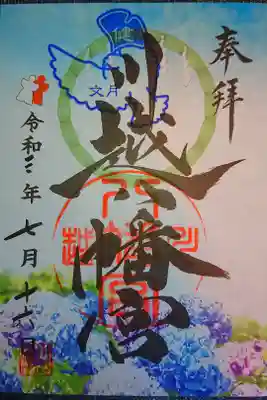 奉拝
川越八幡宮
健
文月
令和三年七月十六日